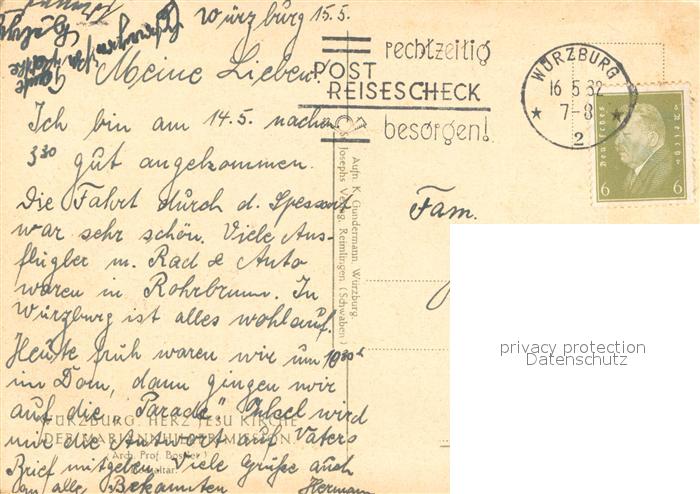 Würzburg 15.5.
Meine Lieben!
Ich bin am 14.5. nachm.
3³⁰ gut angekommen.
Die Fahrt durch d. Spessart
war sehr schön. Viele Aus-
flügler m. Rad & Auto
waren in Rohrbrunn. In
Würzburg ist alles wohlauf.
Heute früh waren wir um 10³⁰ h
im Dom, dann gingen wir
auf die "Parade". Onkel wird
mir die Antwort auf Vaters
Brief mitgeben. Viele Grüße auch
an alle Bekannten Hermann
WÜRZBURG. HERZ JESU KIRCHE
DER MARIANNHILLER MISSION
(Arch. Prof. Boßlet)
Hochaltar.
Aufn. K. Gundermann, Würzburg.
Josephs Verlag, Reimlingen (Schwaben)
rechtzeitig
POST
REISESCHECK
besorgen!
WÜRZBURG
16.5.32
7-8
2
Deutsches Reich
6 6
Fam.
privacy protection
Datenschutz